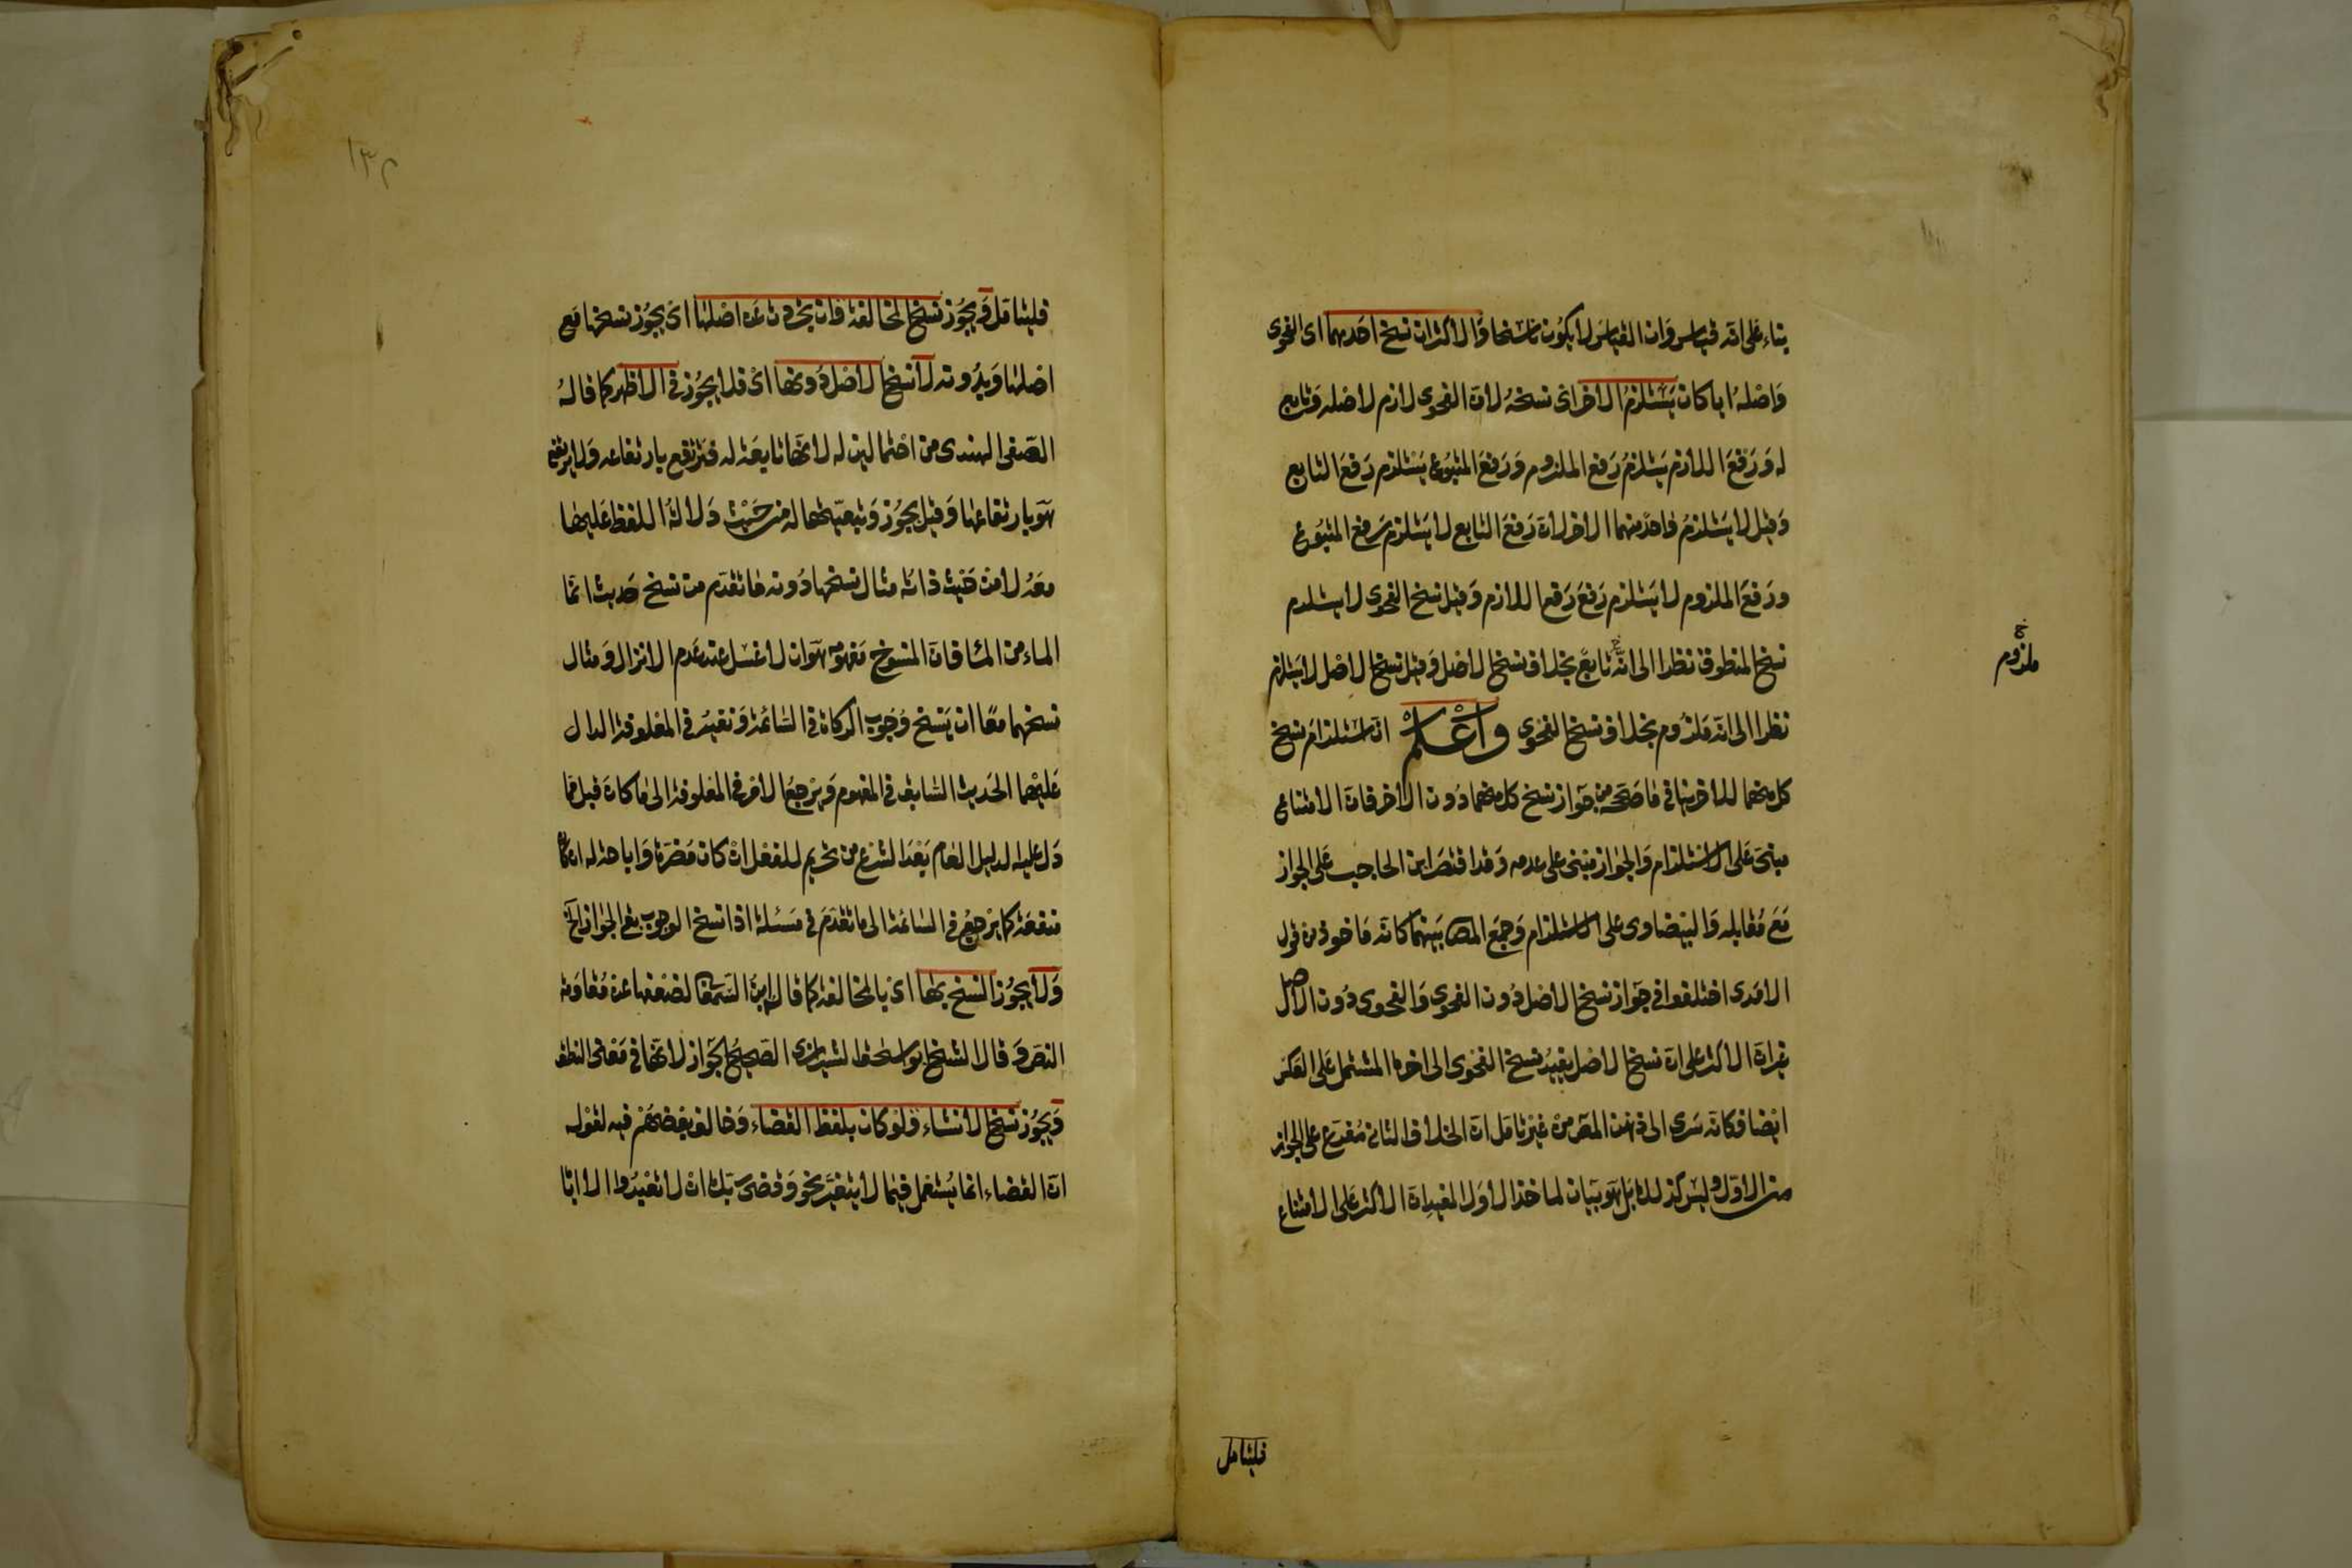 بناء على انه قياس وان القياس لا يكون ناسخا والاكثر ان نسخ احدهما اى الفحوى
واصله ايا كان يستلزم الاخر اى نسخه لان الفحوى لازم لاصله وتابع
له ورفع اللازم يستلزم رفع الملزوم ورفع المتبوع يستلزم رفع التابع
وقيل لا يستلزم واحد منهما الاخر لان رفع التابع لا يستلزم رفع المتبوع
ورفع الملزوم لا يستلزم رفع رفع اللازم وقيل نسخ الفحوى لا يستلزم
نسخ المنطوق نظرا الى انه تابع بخلاف نسخ الاصل وقيل نسخ الاصل لا يستلزم
ملزوم
نظرا الى انه ملزوم بخلاف نسخ الفحوى واعلم ان استلزام نسخ
كل منهما للاخر ينافى ما صححه من جواز نسخ كل منهما دون الاخر فان الامتناع
مبنى على الاستلزام والجواز مبنى على عدمه وقد اقتصر ابن الحاجب على الجواز
مع مقابله والبيضاوى على الاستلزام وجمع المص بينهما كانه ماخوذ من قول
الامدى اختلفوا فى جواز نسخ الاصل دون الفحوى والفحوى دون الاصل
غير ان الاكثر على ان نسخ الاصل يفيد نسخ الفحوى الى اخره المشتمل على العكس
ايضا فكانه سرى الى ذهن المص من غير تامل ان الخلاف الثانى مفرع على الجواز
من الاول وليس كذلك بل هو بيان لماخذ الاول المفيد ان الاكثر على الامتناع
فليتامل
١٣٢
فليتامل ويجوز نسخ المخالفة وان تجردت عن اصلها اى يجوز نسخها مع
اصلها وبدونه لا نسخ الاصل دونها اى فلا يجوز فى الاظهر كما قاله
الصفى الهندى من احتمالين له لانها تابعة له فترتفع بارتفاعه ولا يرتفع
هو بارتفاعها وقيل يجوز وتبعيتها له من حيث دلالة اللفظ عليها
معه لا من حيث ذاته مثال نسخها دونه ما تقدم من نسخ حديث انما
الماء من الماء فان المنسوخ مفهومه هو ان لا غسل عند عدم الانزال ومثال
نسخهما معا ان ينسخ وجوب الزكاة فى السائمة ونفيه فى المعلوفة الدال
عليهما الحديث السابق فى المفهوم ويرجع الامر فى المعلوفة الى ما كان قبل مما
دل عليه الدليل العام بعد الشرع من تحريم للفعل ان كان مضرة او اباحة له ان كان
منفعة كما يرجع فى السائمة الى ما تقدم فى مسئلة اذا نسخ الوجوب بقى الجواز الخ
ولا يجوز النسخ بها اى بالمخالفة كما قال ابن السمعانى لضعفها عن مقاومة
النص وقال الشيخ ابو اسحق الشيرازى الصحيح الجواز لانها فى معنى النطق
ويجوز نسخ الانشاء ولو كان بلفظ القضاء وخالف بعضهم فيه لقوله
ان القضاء انما يستعمل فيما لا يتغير نحو وقضى ربك ان لا تعبدوا الا اياه